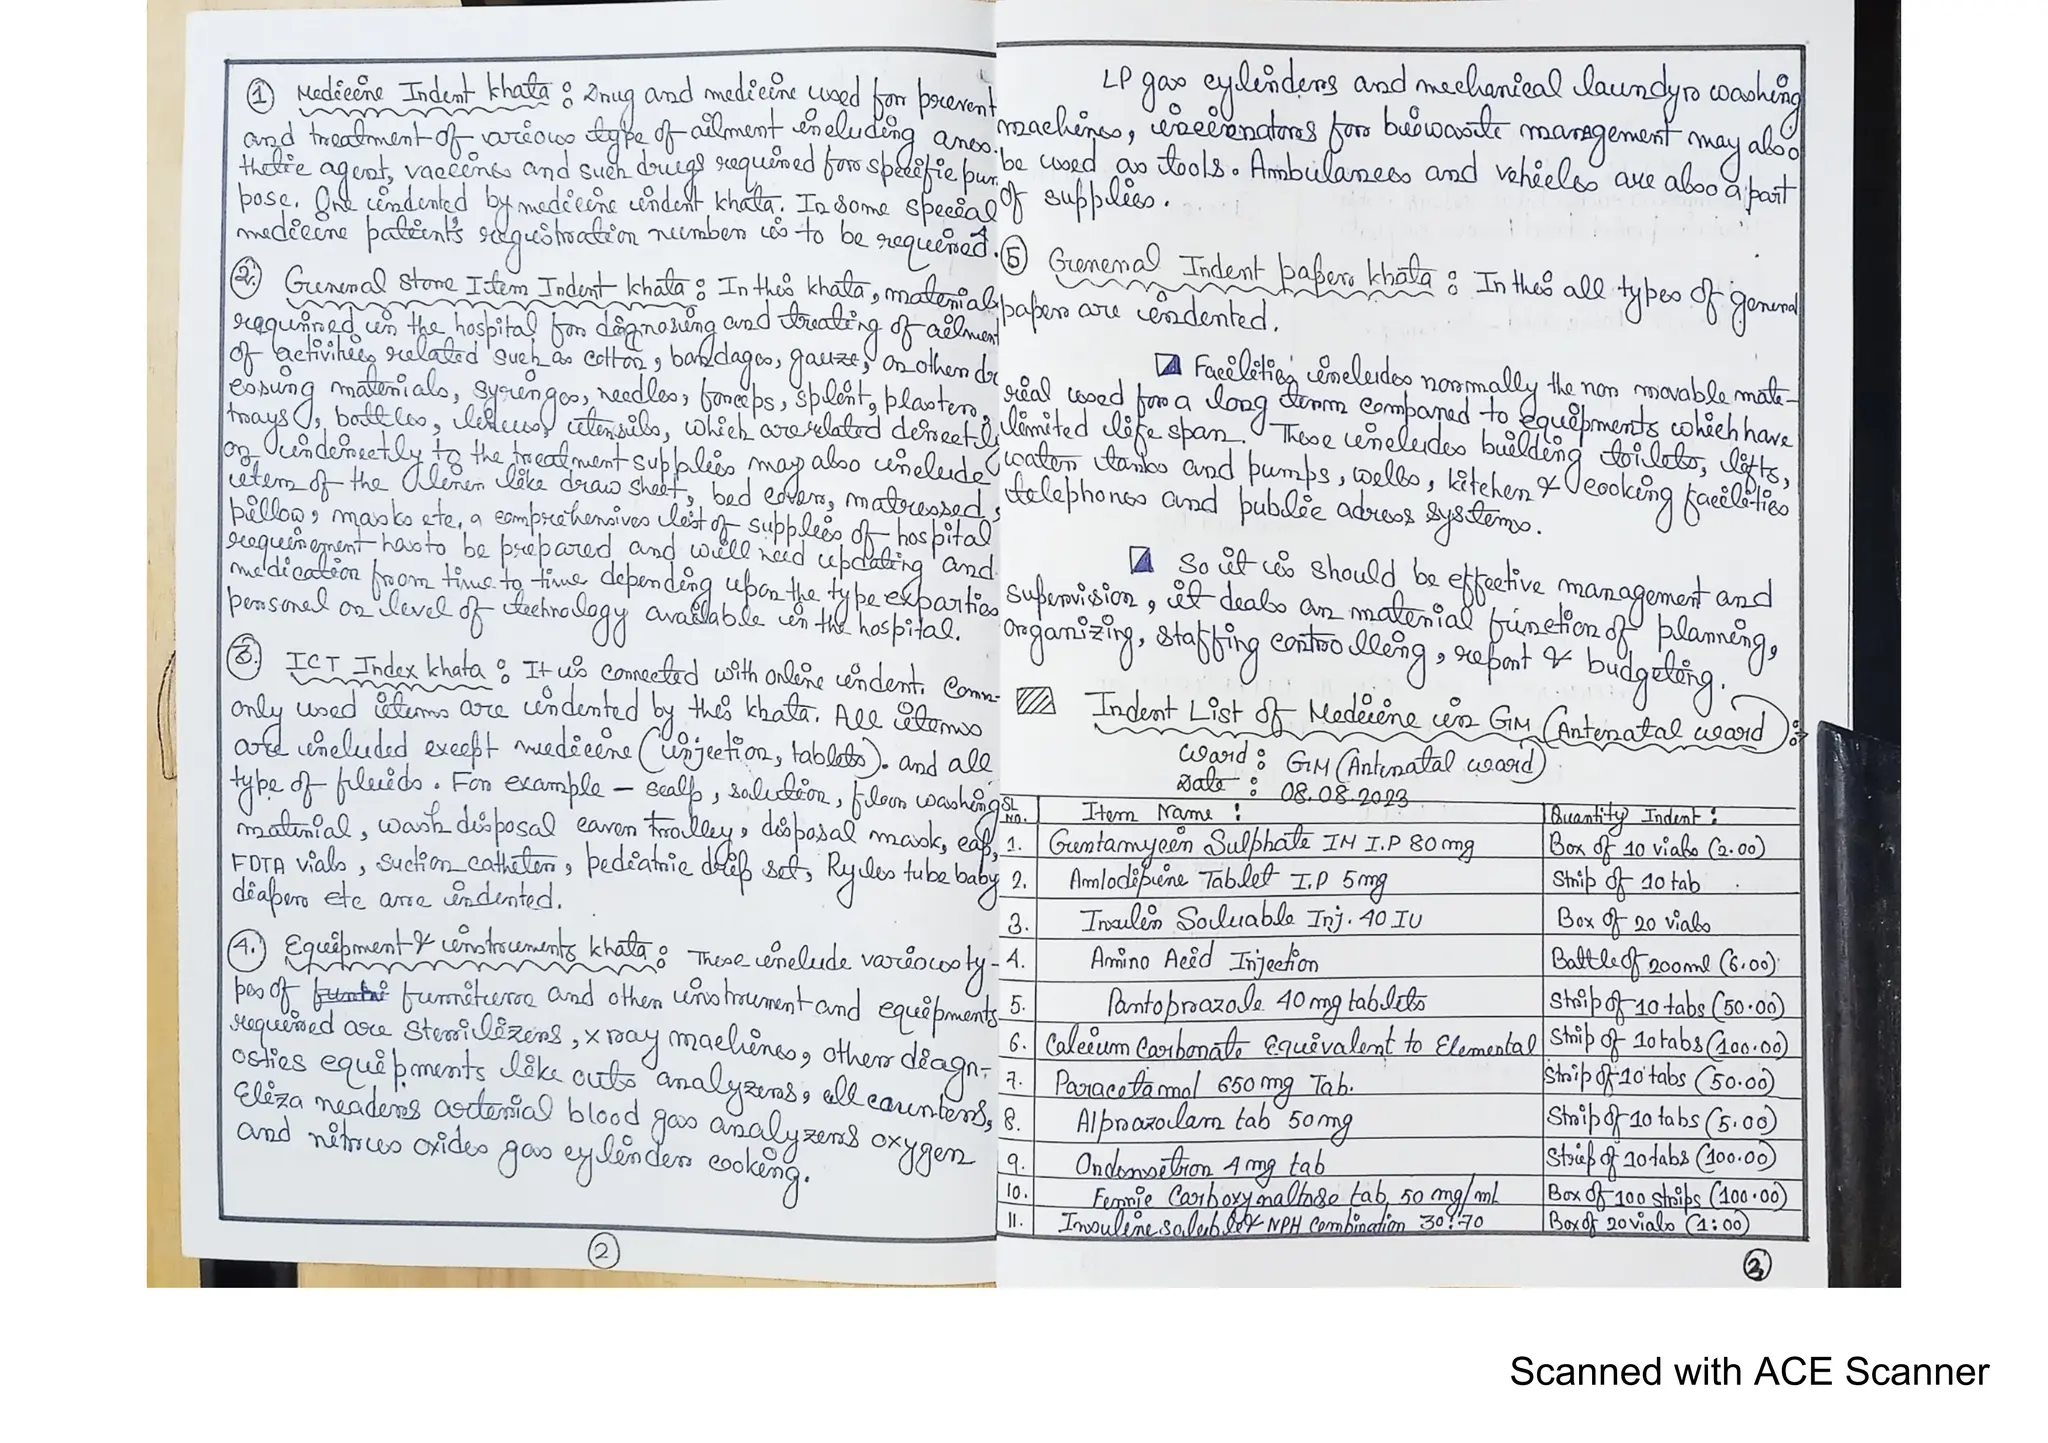 ① Medicine Indent khata : Drug and medicine used for prevent
and treatment of various type of ailment including anes-
thetic agent, vaccines and such drugs required for specific pur
pose. One indented by medicine indent khata. In some special
medicine patient's registration number is to be required.
②. General Store Item Indent khata : In this khata, materials
required in the hospital for diagnosing and treating of ailment
of activities related such as cotton, bandages, gauze, or other dr
essing materials, syringes, needles, forceps, splint, plasters,
trays, bottles, utensils, which are related directly
or indirectly to the treatment supplies may also include
item of the linen like draw sheet, bed cover, matressed,
pillow, masks etc. a comprehensives list of supplies of hospital
requirement has to be prepared and will need updating and
medication from time to time depending upon the type exparties
personel or level of technology available in the hospital.
③. ICT Index khata : It is connected with online indent. Comm-
only used items are indented by this khata. All items
are included except medicine (injection, tablets). and all
type of fluids. For example - scalp, solution, floor washing
material, wash disposal caven trolley, disposal mask, cap,
FDTA vials, suction catheter, pediatric drip set, Ryles tube baby
diapers etc are indented.
④. Equipment & instruments khata : These include various ty-
pes of furniture and other instrument and equipments
required are sterilizers, x ray machines, other diagn-
ostics equipments like auto analyzers, cell counters,
Eliza readers arterial blood gas analyzers oxygen
and nitrus oxides gas cylinder cooking.
②
LP gas cylinders and mechanical laundry washing
machines, incinerators for biowaste management may also
be used as tools. Ambulances and vehicles are also a part
of supplies.
⑤ General Indent papers khata : In this all types of general
papers are indented.
Facilities includes normally the non movable mate-
rial used for a long term compared to equipments which have
limited life span. These includes building toilets, lifts,
water tanks and pumps, wells, kitchen & cooking facilities
telephones and public adress systems.
So it is should be effective management and
supervision, it deals an material function of planning,
organizing, staffing controlling, report & budgeting.
Indent List of Medicine in GM (Antenatal ward) :
Ward : GM (Antenatal ward)
Date : 08.08.2023
SL NO. Item Name : Quantity Indent :
1. Gentamycin Sulphate IM I.P 80mg Box of 10 vials (2.00)
2. Amlodipine Tablet I.P 5mg Strip of 10 tab
3. Insulin Soluable Inj. 40 IU Box of 20 vials
4. Amino Acid Injection Battle of 200ml (6.00)
5. Pantoprazole 40 mg tablets Strip of 10 tabs (50.00)
6. Calcium Carbonate Equivalent to Elemental Strip of 10 tabs (100.00)
7. Paracetamol 650 mg Tab. Strip of 10 tabs (50.00)
8. Alprazolam tab 50mg Strip of 10 tabs (5.00)
9. Ondonsetron 4 mg tab Strip of 10 tabs (100.00)
10. Ferric Carboxymaltose tab, 50 mg/ml Box of 100 strips (100.00)
11. Insuline soluble & NPH Combination 30:70 Box of 20 vials (1:00)
③
Scanned with ACE Scanner